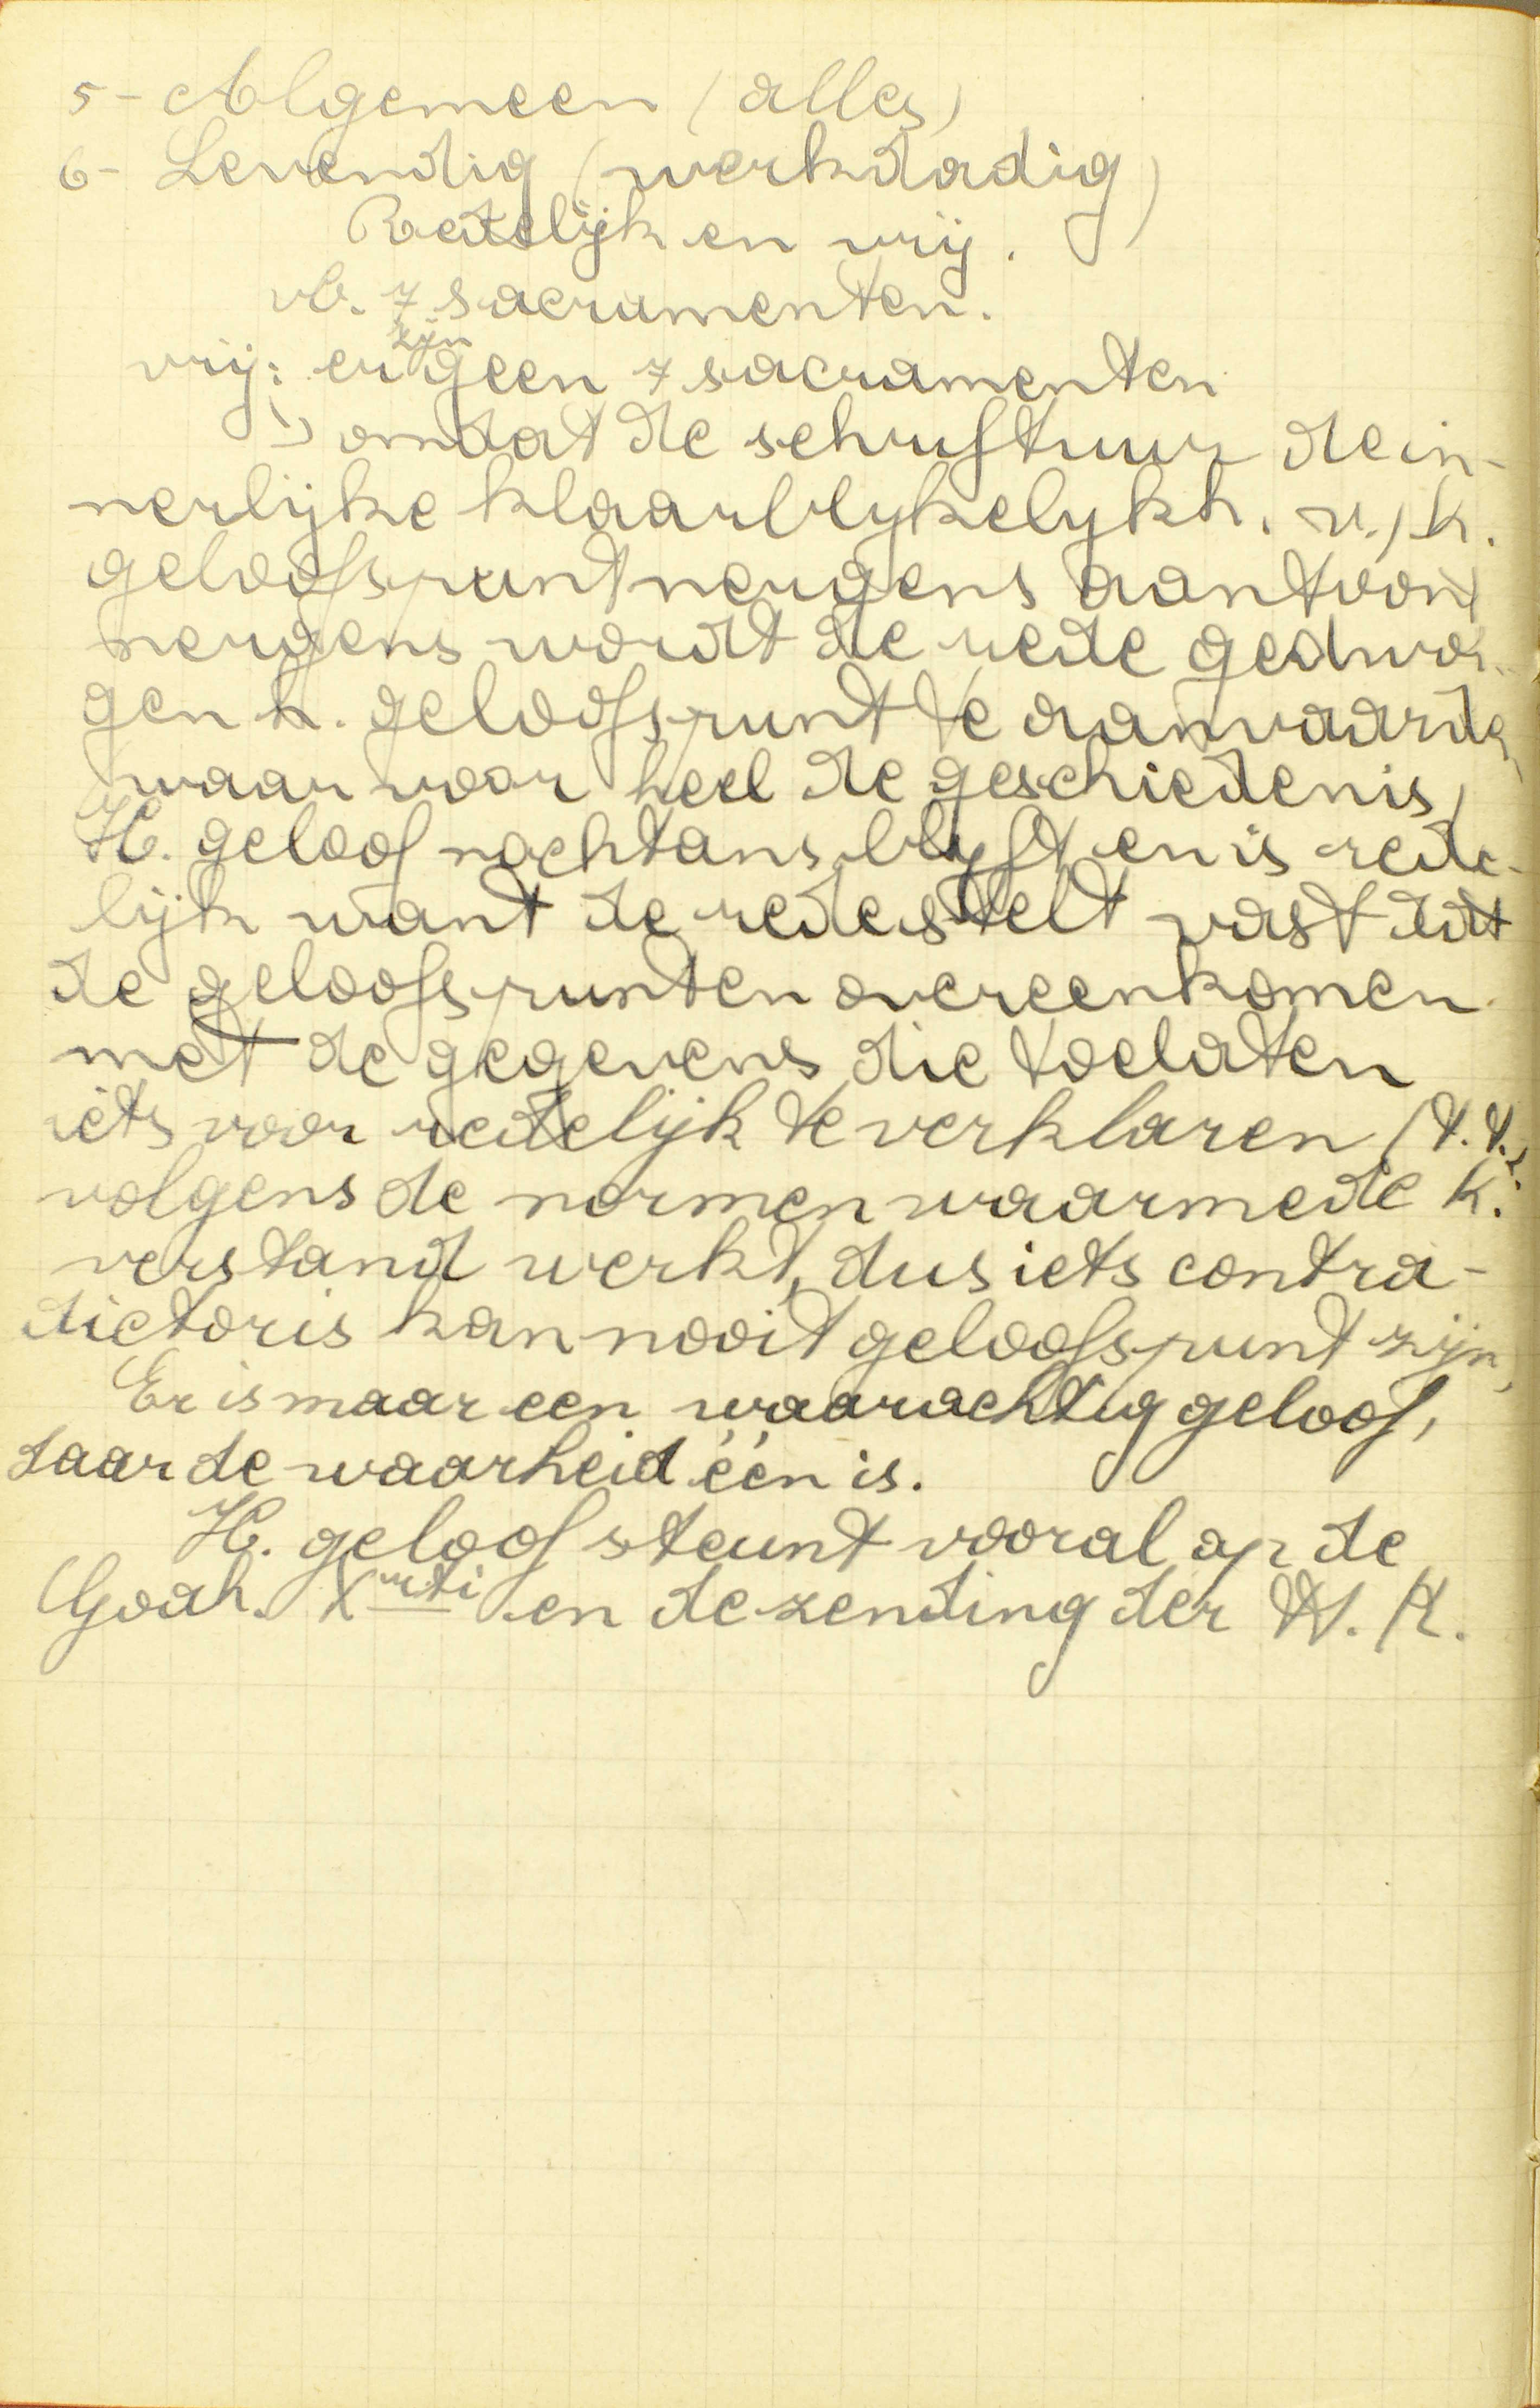 5- Algemeen (alles)
6- Levendig (werkdadig)
Redelijk en vrij.
vb. 7 sacramenten.
vrij: er zijn geen 7 sacramenten
1) omdat de schriftuur de in-
nerlijke klaarblykelykh. v./h.
geloofspunt nergens aantoont
nergens wordt de rede gedwon-
gen h. geloofspunt te aanvaarden
waar voor heel de geschiedenis,
H. geloof nochtans blyft en is rede-
lijk want de rede stelt vast dat
de geloofspunten overeenkomen
met de gegevens die toelaten
iets voor redelijk te verklaren (d.i.
volgens de normen waarmede h.
verstand werkt, dus iets contra-
dictoris kan nooit geloofspunt zijn,
Er is maar een waarachtig geloof,
daar de waarheid één is.
H. geloof steunt vooral op de
Godh. Xrti en de zending der W. K.